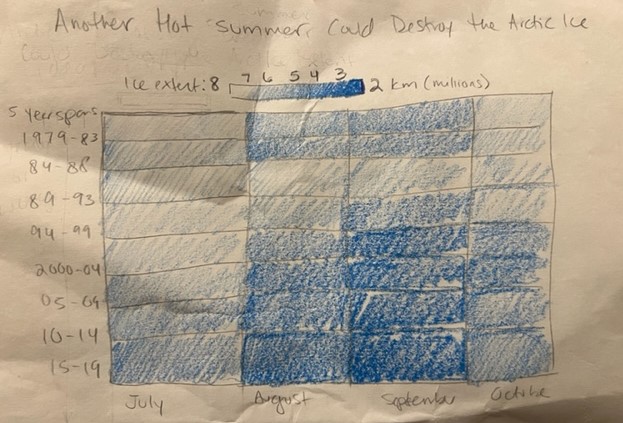 Another Hot summer Could Destroy the Arctic Ice
Ice extent: 8 7 6 5 4 3 2 km (millions)
5 year spans
1979-83
84-88
89-93
94-99
2000-04
05-09
10-14
15-19
July August September October